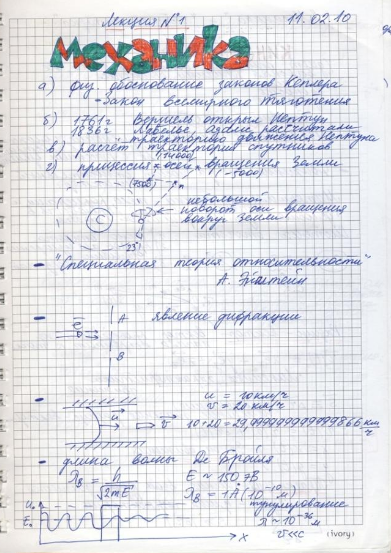 Лекция №1 11.02.10
Механика
а) физ обоснование законов Кеплера
Закон всемирного тяготения
б) 1781г Вершель открыл Нептун
1836г Лаверье, Адамс рассчитали
траекторию движения Нептуна
в) расчёт траектории спутников
г) прицессия оси вращения Земли
небольшой
поворот оси вращения
вокруг Земли
C
23°
- "Специальная теория относительности"
А. Эйнштейн
- явление дифракции
e
A
B
u = 10 км/ч
v = 20 км/ч
u v 10+20=29,9999999999999866 км/ч
- длина волны Де Бройля
λB = h/√2mE E ≈ 150 эВ
λB = 1Å (10⁻¹⁰ м)
тунулирование
λ ~ 10⁻³⁶ м
U₀
E₀
x v<<c (ivory)